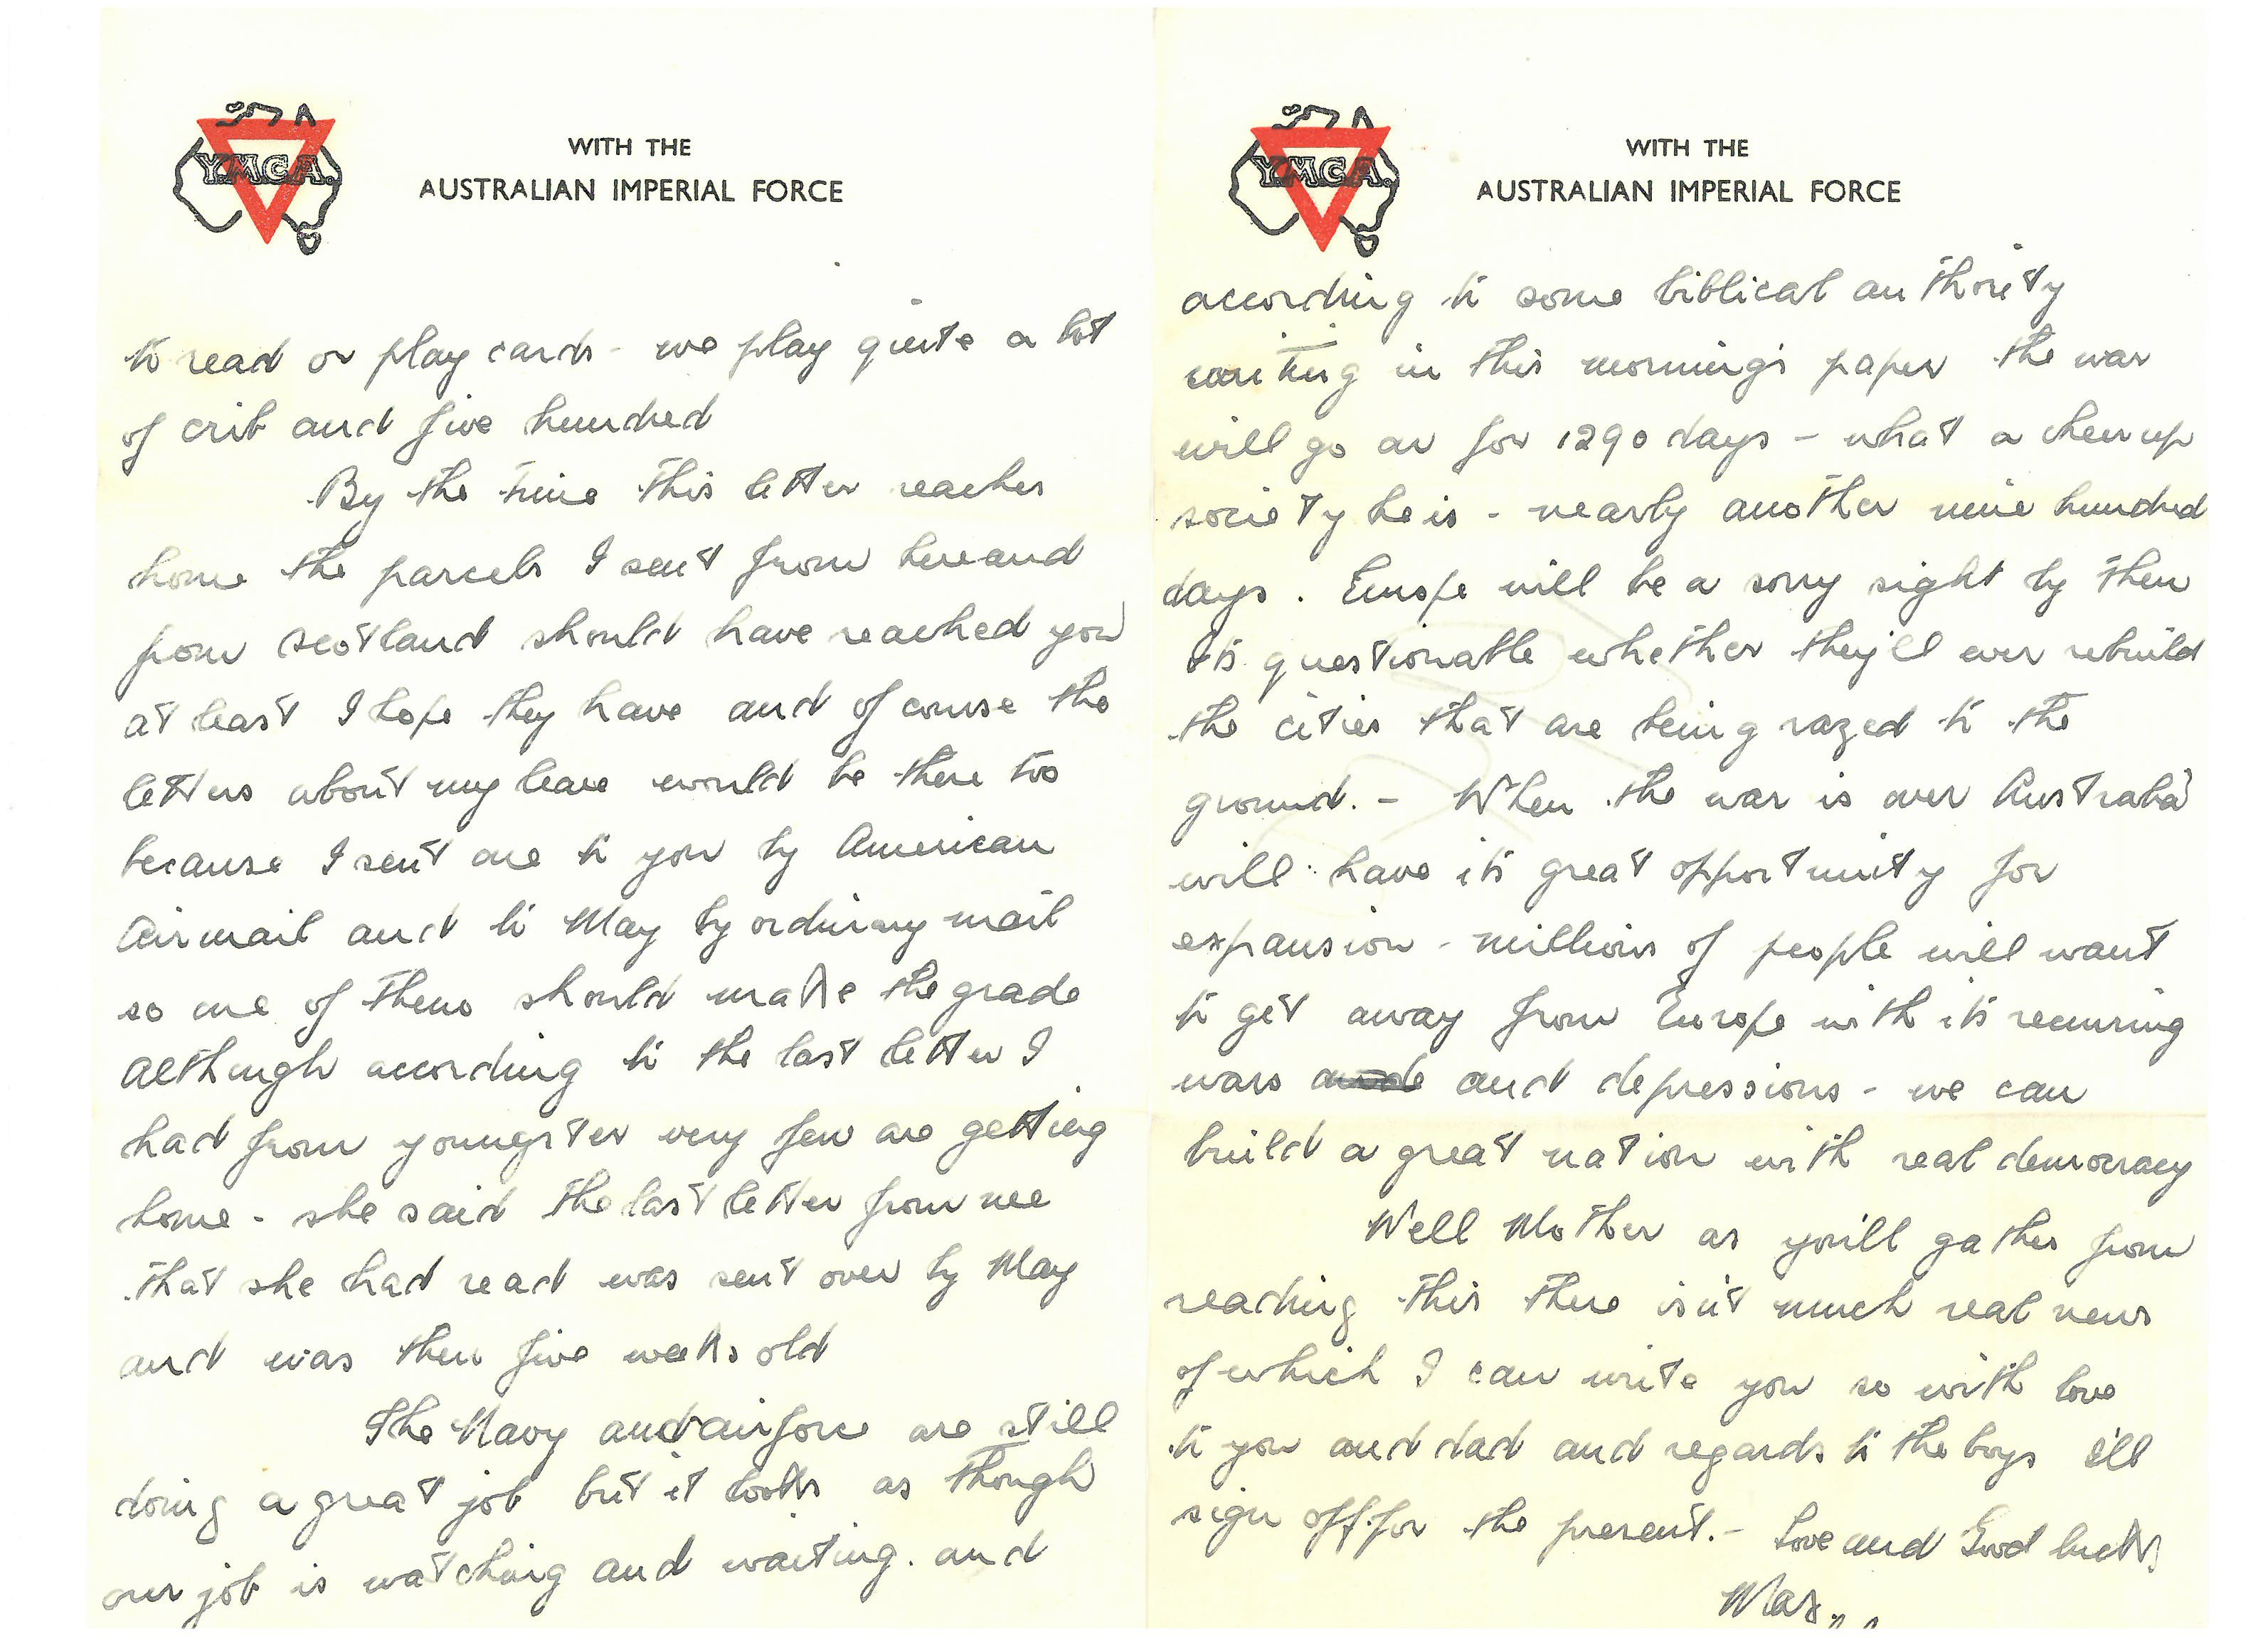 Y.M.C.A.
WITH THE
AUSTRALIAN IMPERIAL FORCE
to read or play cards - we play quite a lot
of crib and five hundred
By the time this letter reaches
home the parcels I sent from here and
from Scotland should have reached you
at least I hope they have and of course the
letters about my leave would be there too
because I sent one to you by American
Airmail and to May by ordinary mail
so one of them should make the grade
Although according to the last letter I
had from youngster very few are getting
home - she said the last letter from me
that she had read was sent over by May
and was then five weeks old
The Navy and airforce are still
doing a great job but it looks as though
our job is watching and waiting. and
Y.M.C.A.
WITH THE
AUSTRALIAN IMPERIAL FORCE
according to some biblical authority
writing in this morning's paper the war
will go on for 1290 days - what a cheerup
society he is - nearly another nine hundred
days. Europe will be a sorry sight by then
its questionable whether they'll ever rebuild
the cities that are being razed to the
ground. - When the war is over Australia
will have its great opportunity for
expansion - millions of people will want
to get away from Europe with its recurring
wars and depressions - we can
build a great nation with real democracy
Well Mother as you'll gather from
reading this there isn't much real news
of which I can write you so with love
to you and dad and regards to the boys I'll
sign off for the present. - Love and Good luck,